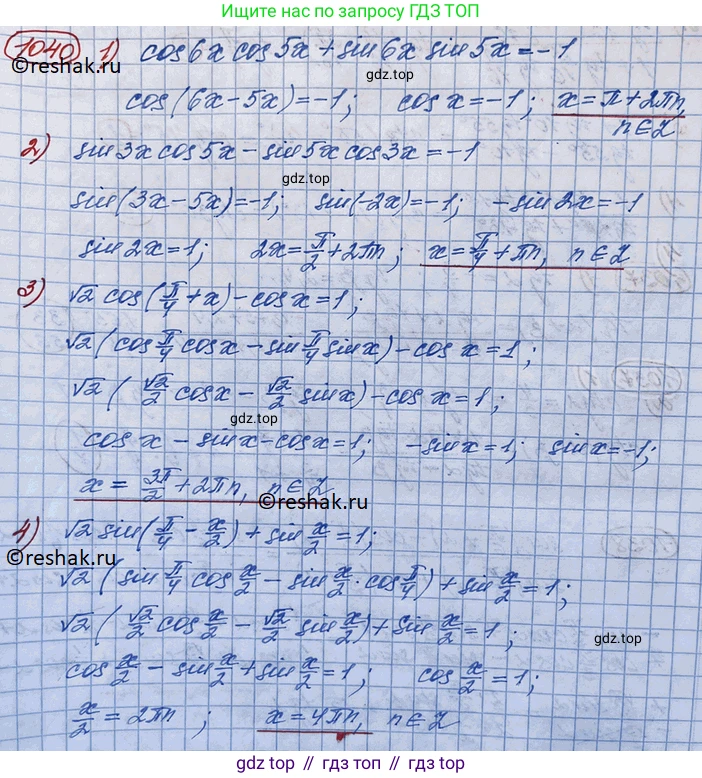 Ищите нас по запросу ГДЗ ТОП
1040 1) cos6x cos5x + sin6x sin5x = -1
gdz.top
©reshak.ru
cos(6x-5x) = -1; cos x = -1; x = π + 2πn,
n∈Z
2) sin3x cos5x - sin5x cos3x = -1
gdz.top
sin(3x-5x) = -1; sin(-2x) = -1; -sin2x = -1
sin2x = 1; 2x = π/2 + 2πn; x = π/4 + πn, n∈Z
3) √2 cos(π/4 + x) - cosx = 1;
√2 (cos π/4 cosx - sin π/4 sinx) - cos x = 1;
√2 (√2/2 cosx - √2/2 sinx) - cos x = 1;
gdz.top
cos x - sinx - cosx = 1; -sinx = 1; sinx = -1;
x = 3π/2 + 2πn, n∈Z
©reshak.ru
4) √2 sin(π/4 - x/2) + sin x/2 = 1;
©reshak.ru
√2 (sin π/4 cos x/2 - sin x/2 · cos π/4) + sin x/2 = 1;
√2 (√2/2 cos x/2 - √2/2 sin x/2) + sin x/2 = 1;
gdz.top
cos x/2 - sin x/2 + sin x/2 = 1; cos x/2 = 1;
x/2 = 2πn; x = 4πn, n∈Z
gdz.top // гдз.top // гдз.топ